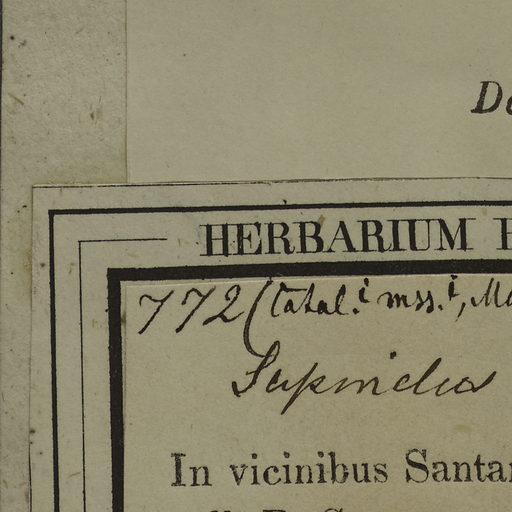 HERBARIUM
772 (Catal.i mss.i,
Sapindus
In vicinibus